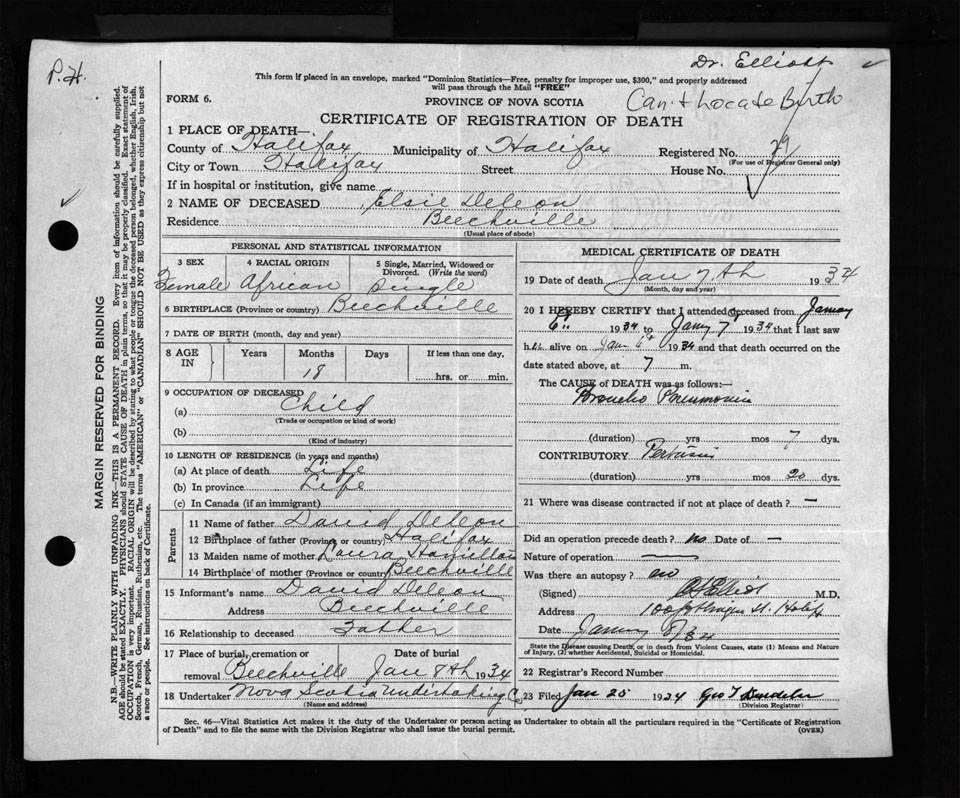 P.H.
Dr. Elliott
This form if placed in an envelope, marked "Dominion Statistics—Free, penalty for improper use, $300," and properly addressed
will pass through the Mail "FREE"
FORM 6.
PROVINCE OF NOVA SCOTIA
Can't Locate Birth
CERTIFICATE OF REGISTRATION OF DEATH
1 PLACE OF DEATH—
County of Halifax Municipality of Halifax Registered No. 29
(For use of Registrar General only)
City or Town Halifax Street House No.
If in hospital or institution, give name
2 NAME OF DECEASED Elsie Deleon
Residence Beechville
(Usual place of abode)
PERSONAL AND STATISTICAL INFORMATION
3 SEX 4 RACIAL ORIGIN 5 Single, Married, Widowed or
Divorced. (Write the word)
Female African Single
6 BIRTHPLACE (Province or country) Beechville
7 DATE OF BIRTH (month, day and year)
8 AGE IN Years Months Days If less than one day,
18 hrs. or min.
9 OCCUPATION OF DECEASED
(a) Child
(Trade or occupation or kind of work)
(b)
(Kind of industry)
10 LENGTH OF RESIDENCE (in years and months)
(a) At place of death Life
(b) In province Life
(c) In Canada (if an immigrant)
Parents
11 Name of father David Deleon
12 Birthplace of father (Province or country) Halifax
13 Maiden name of mother Laura Hamilton
14 Birthplace of mother (Province or country) Beechville
15 Informant's name David Deleon
Address Beechville
16 Relationship to deceased Father
17 Place of burial, cremation or Date of burial
removal Beechville Jan 8th 1934
18 Undertaker Nova Scotia Undertaking Co
(Name and address)
MEDICAL CERTIFICATE OF DEATH
19 Date of death Jan 7th 1934
(Month, day and year)
20 I HEREBY CERTIFY that I attended deceased from
6th 1934 to 7th 1934 that I last saw
h alive on 6th 1934 and that death occurred on the
date stated above, at 7 m.
The CAUSE of DEATH was as follows:—
Broncho Pneumonia
(duration) yrs mos 7 dys.
CONTRIBUTORY Pertussis
(duration) yrs mos 20 dys.
21 Where was disease contracted if not at place of death? —
Did an operation precede death? no Date of —
Nature of operation —
Was there an autopsy? no
(Signed) Elliott M.D.
Address
Date
State the Disease causing Death, or in death from Violent Causes, state (1) Means and Nature
of Injury, (2) whether Accidental, Suicidal or Homicidal.
22 Registrar's Record Number
23 Filed Jan 25 1934 Geo T
(Division Registrar)
Sec. 46—Vital Statistics Act makes it the duty of the Undertaker or person acting as Undertaker to obtain all the particulars required in the "Certificate of Registration
of Death" and to file the same with the Division Registrar who shall issue the burial permit.
(OVER)
MARGIN RESERVED FOR BINDING
N.B.—WRITE PLAINLY WITH UNFADING INK—THIS IS A PERMANENT RECORD. Every item of information should be carefully supplied.
AGE should be stated EXACTLY. PHYSICIANS should STATE CAUSE OF DEATH in plain terms, so that it may be properly classified. Exact statement of
OCCUPATION is very important. RACIAL ORIGIN will be described by stating to what people or tongue the deceased person belonged, whether English, Irish,
Scotch, French, German, Russian, Ruthenian, etc. The terms "AMERICAN" or "CANADIAN" SHOULD NOT BE USED as they express citizenship but not
a race or people. See instructions on back of Certificate.